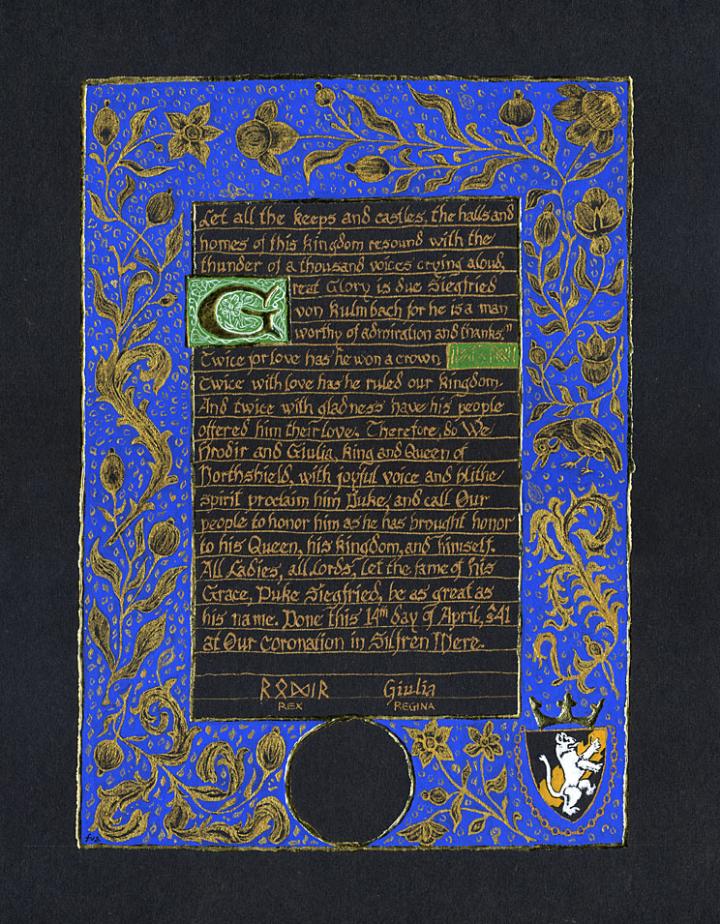 Let all the keeps and castles, the halls and
homes of this kingdom resound with the
thunder of a thousand voices crying aloud,
Great Glory is due Siegfried
von Kulmbach for he is a man
worthy of admiration and thanks."
Twice for love has he won a crown
Twice with love has he ruled our kingdom.
And twice with gladness have his people
offered him their love. Therefore, do We
Hrodir and Giulia, King and Queen of
Northshield, with joyful voice and blithe
spirit proclaim him Duke, and call Our
people to honor him as he has brought honor
to his Queen, his kingdom, and himself.
All Ladies, all Lords, Let the fame of his
Grace, Duke Siegfried, be as great as
his name. Done this 14th day of April,
at Our coronation in Silfren Mere.
Giulia
REX REGINA